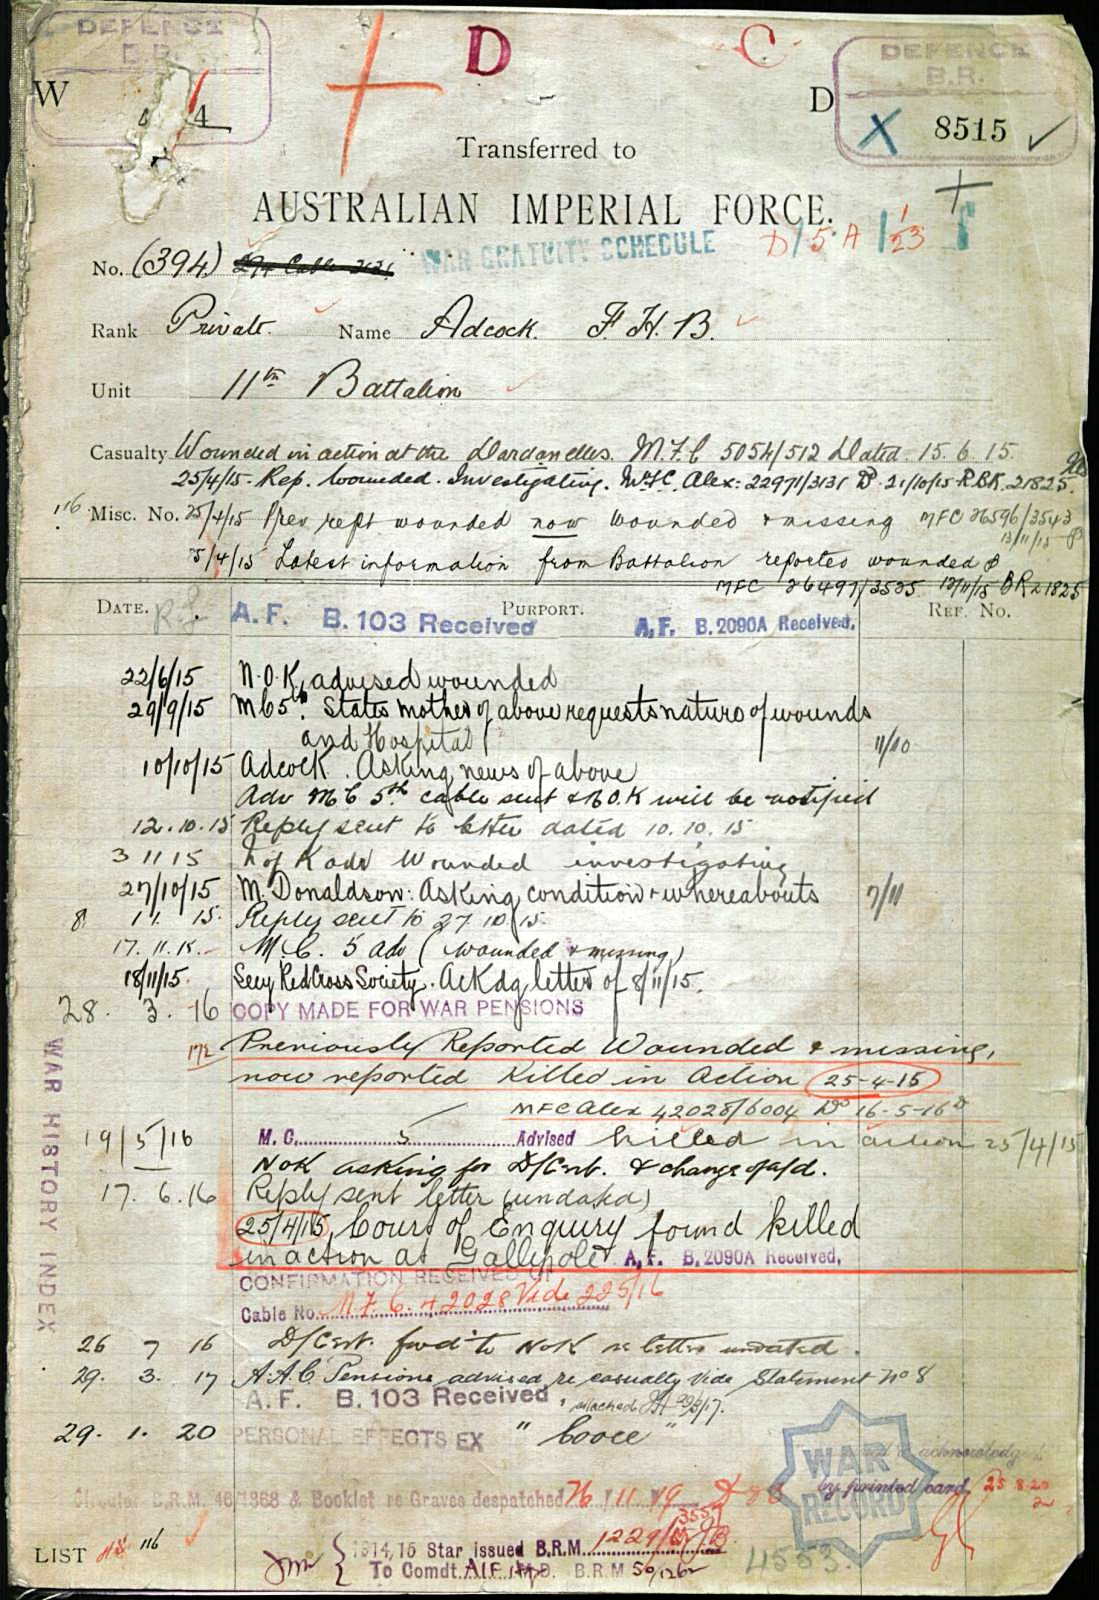 DEFENCE
B.R.
D
C
DEFENCE
B.R.
W
4
D
X 8515 ✓
Transferred to
AUSTRALIAN IMPERIAL FORCE.
WAR GRATUITY SCHEDULE
No. (394)
Rank Private Name Adcock. F. H. B.
Unit 11th Battalion
Casualty Wounded in action at the Dardanelles. M.F.C 5054/512 Dated 15.6.15.
25/4/15 - Rep. Wounded. Investigating. Alex: 22971/3131 D 21/10/15 RBK. 21825.
Misc. No. 25/4/15 Prev rept wounded now Wounded & missing MFC 36596/3543
13/11/15
25/4/15 Latest information from Battalion reported wounded
MFC 26497/3535 13/11/15 BR 21825
DATE. PURPORT. REF. No.
A.F. B. 103 Received A.F. B. 2090A Received.
22/6/15 N.O.K. advised wounded
29/9/15 M.C. 5th. States mother of above requests nature of wounds
and Hospital 11/10
10/10/15 Adcock. Asking news of above
Adv M.C 5th cable sent & N.O.K will be notified
12.10.15 Reply sent to letter dated 10.10.15
3 11 15 N of K adv Wounded investigating
27/10/15 M. Donaldson: Asking condition & whereabouts 7/11
8 11. 15. Reply sent to 27 10 15.
17.11.15. M.C. 5 adv (wounded & missing)
18/11/15. Secy Red Cross Society. Ackdg letter of 8/11/15.
28. 3. 16 COPY MADE FOR WAR PENSIONS
172 Previously Reported Wounded & missing,
now reported Killed in Action 25-4-15
MFC Alex 42028/6004 Dd 16-5-16
19/5/16 M.C. 5 Advised killed in action 25/4/15
NOK asking for D/Cert. & change of a/d.
17. 6. 16 Reply sent letter (undated)
25/4/15, Court of Enquiry found killed
in action at Gallipoli A.F. B. 2090A Received.
CONFIRMATION RECEIVED OF
Cable No. M.F.C. 42028 Vide 225/16
WAR HISTORY INDEX
26 7 16 D/Cert. fwd to NOK re letter undated.
29. 3. 17 A.A.C. Pensions advised re casualty vide Statement No 8
A.F. B. 103 Received attached
29. 1. 20 PERSONAL EFFECTS EX " "
acknowledged
by printed card 25.8.20
WAR
RECORD
Circular B.R.M. 46/1368 & Booklet re Graves despatched 26/11/19
LIST 116
1914,15 Star issued B.R.M. 1229/
To Comdt. A.I.F. M.D. B.R.M 50/1262
4553.